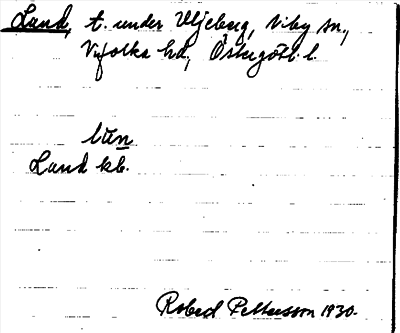 Lund, t. under Uljeberg, Viby sn,
Vifolka hd, Östergötl. l.
lu̅n
Lund kb.
Robert Pettersson 1930.